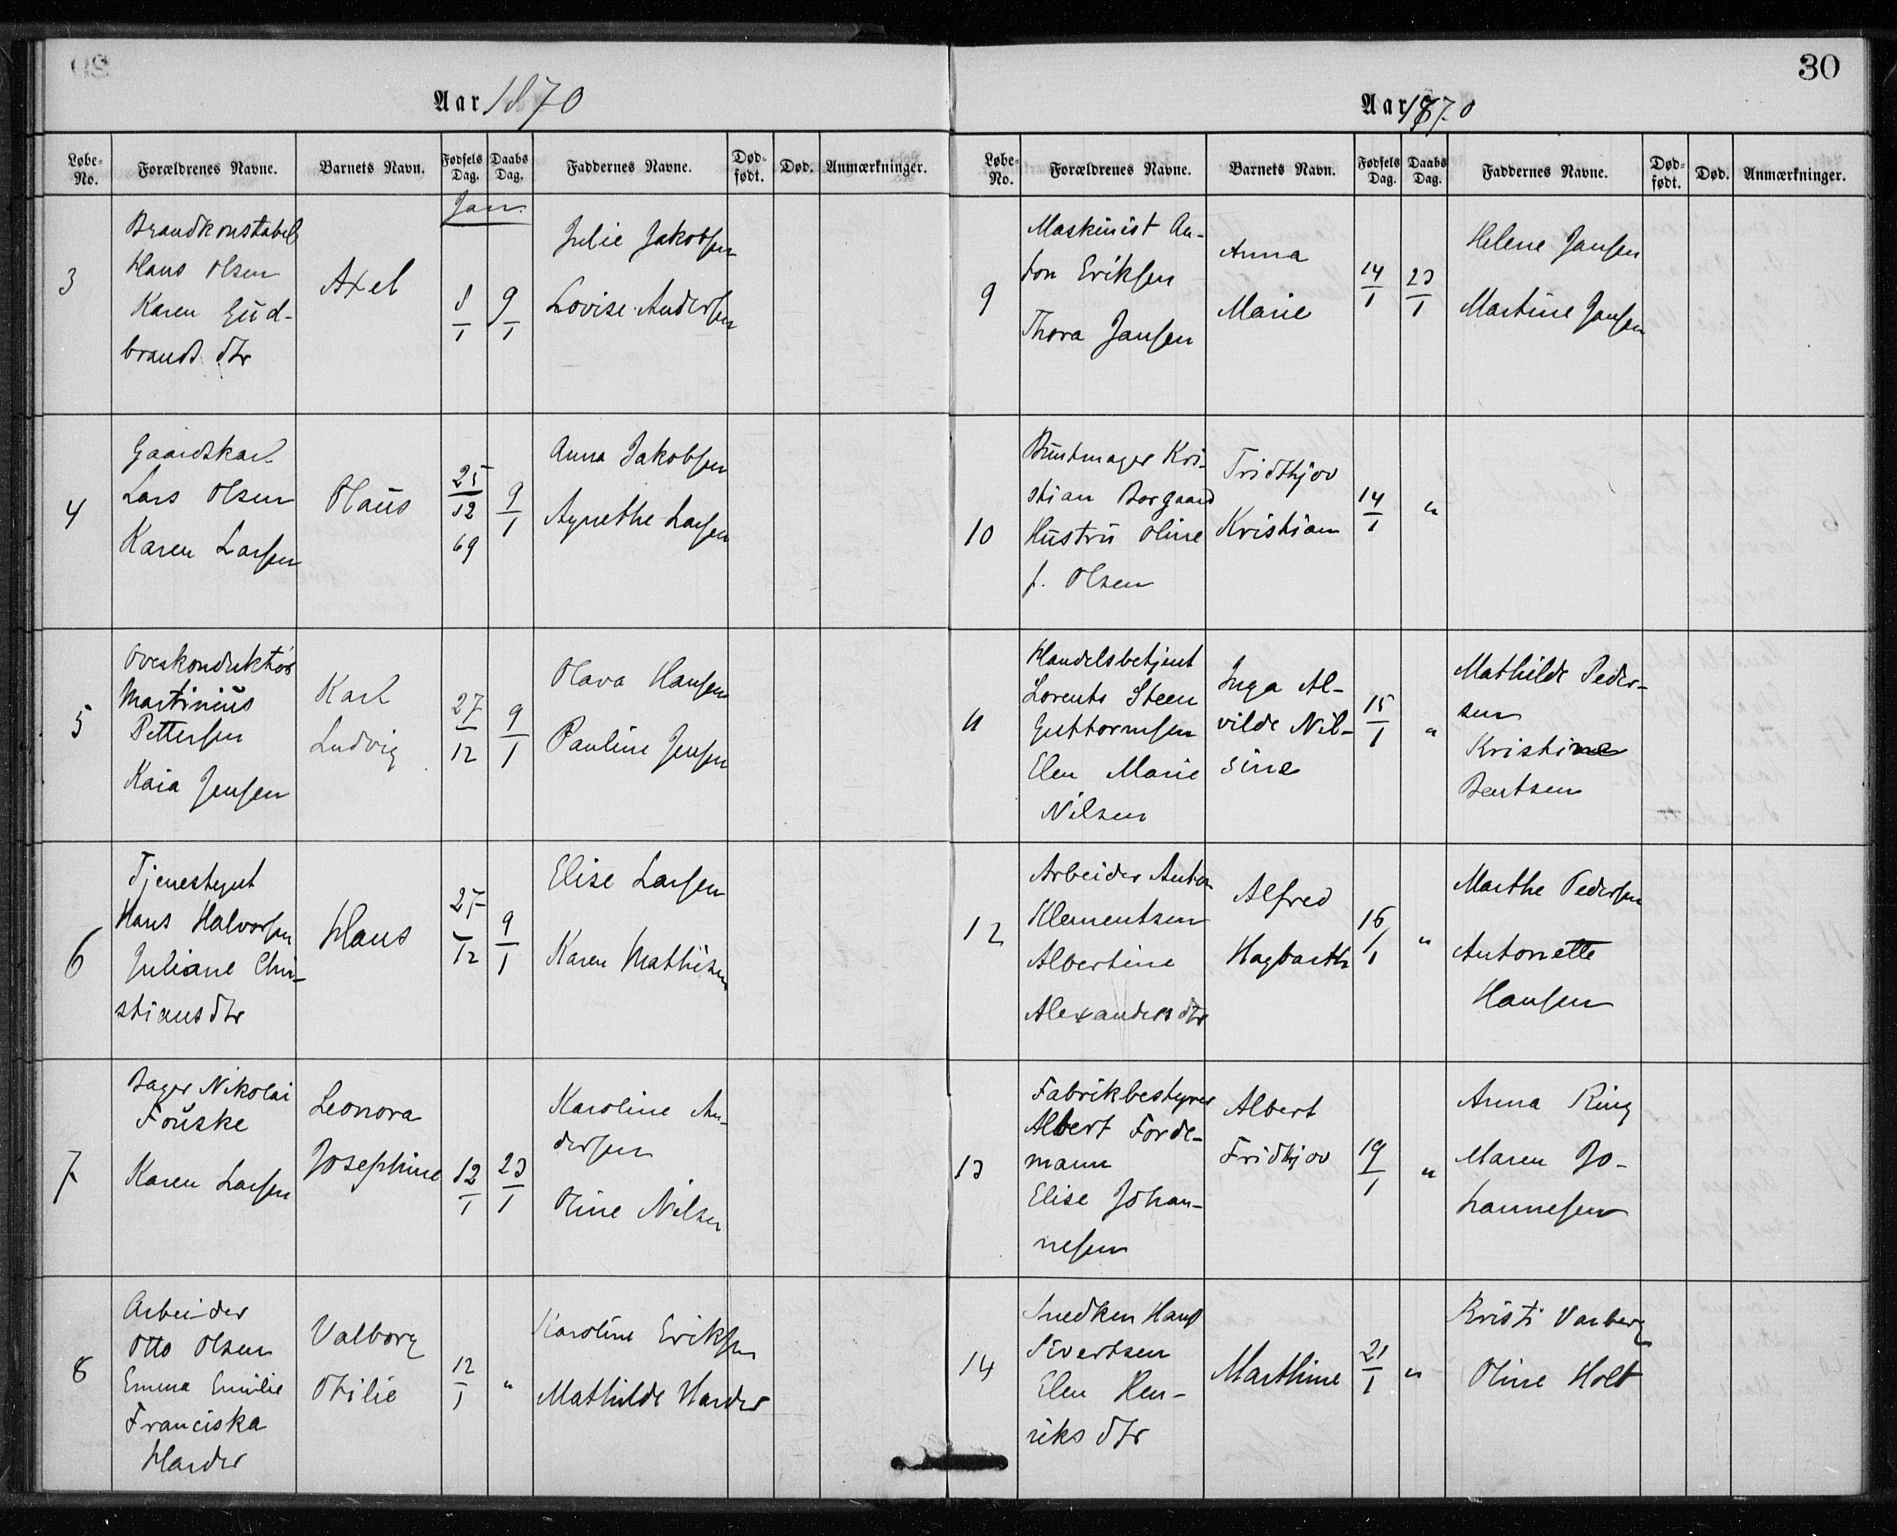 Aar 1870
Løbe-No. Forældrenes Navne. Barnets Navn. Fødsels Dag. Daabs Dag. Faddernes Navne. Død-født. Død. Anmærkninger.
Jan.
3
Brandkonstabel
Hans Olsen
Karen Gud-
brands dtr
Axel
8/1
9/1
Julie Jakobsen
Lovise Andersen
4
Gaardskarl
Lars Olsen
Karen Larsen
Olaus
25/12
69
9/1
Anna Jakobsen
Agnethe Larsen
5
Overkonduktør
Martinius
Pettersen
Kaia Jensen
Karl
Ludvig
27/12
9/1
Olava Hansen
Pauline Jensen
6
Tjenestegut
Hans Halvorsen
Juliane Chri-
stians dtr
Hans
9/1
Elise Larsen
Karen Mathisen
7
Bager Nikolai
Fouske
Karen Larsen
Leonora
Josephine
12/1
23/1
Karoline An-
dersen
Oline Nilsen
8
Arbeider
Otto Olsen
Emma Emilie
Franciska
Harder
Valborg
Otilie
12/1
"
Karoline Eriksen
Mathilde Harder
30
Aar 1870
Løbe-No. Forældrenes Navne. Barnets Navn. Fødsels Dag. Daabs Dag. Faddernes Navne. Død-født. Død. Anmærkninger.
9
Maskinist An-
ton Eriksen
Thora Jansen
Anna
Marie
14/1
23/1
Helene Jansen
Martine Jansen
10
Buntmager Kri-
stian Borgaard
Hustru Oline
f. Olsen
Fridthjov
Kristian
14/1
"
11
Handelsbetjent
Lorents Steen
Guttormsen
Elen Marie
Nilsen
Inga Al-
vilde Nil-
sine
15/1
"
Mathilde Peder-
sen
Kristine
Bentsen
12
Arbeider Anton
Klementsen
Albertine
Alexanders dtr
Alfred
Hagbarth
16/1
"
Marthe Pedersen
Antonette
Hansen
13
Fabrikbestyrer
Albert Forde-
mann
Elise Johan-
nesen
Albert
Fridthjov
19/1
"
Anna Ring
Maren Jo-
hannesen
14
Snedker Hans
Sivertsen
Elen Hen-
riks dtr
Marthine
21/1
"
Kristi Varberg
Oline Holt